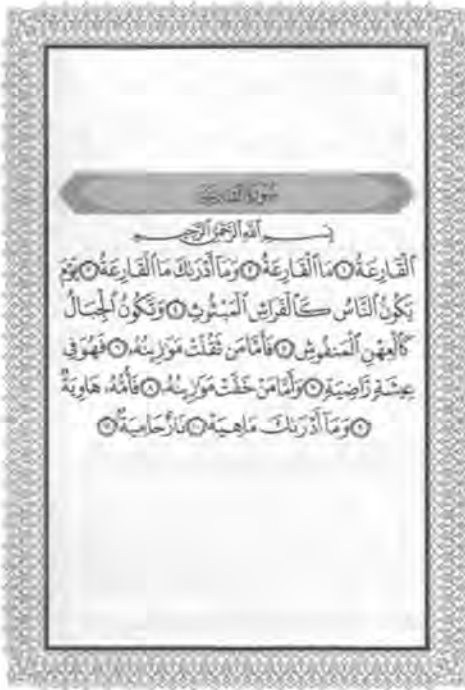 سورة القارعة
بسم الله الرحمن الرحيم
ٱلْقَارِعَةُ ۝١ مَا ٱلْقَارِعَةُ ۝٢ وَمَآ أَدْرَىٰكَ مَا ٱلْقَارِعَةُ ۝٣ يَوْمَ
يَكُونُ ٱلنَّاسُ كَٱلْفَرَاشِ ٱلْمَبْثُوثِ ۝٤ وَتَكُونُ ٱلْجِبَالُ
كَٱلْعِهْنِ ٱلْمَنفُوشِ ۝٥ فَأَمَّا مَن ثَقُلَتْ مَوَٰزِينُهُۥ ۝٦ فَهُوَ فِى
عِيشَةٍ رَّاضِيَةٍ ۝٧ وَأَمَّا مَنْ خَفَّتْ مَوَٰزِينُهُۥ ۝٨ فَأُمُّهُۥ هَاوِيَةٌ
۝٩ وَمَآ أَدْرَىٰكَ مَا هِيَهْ ۝١٠ نَارٌ حَامِيَةٌۢ ۝١١